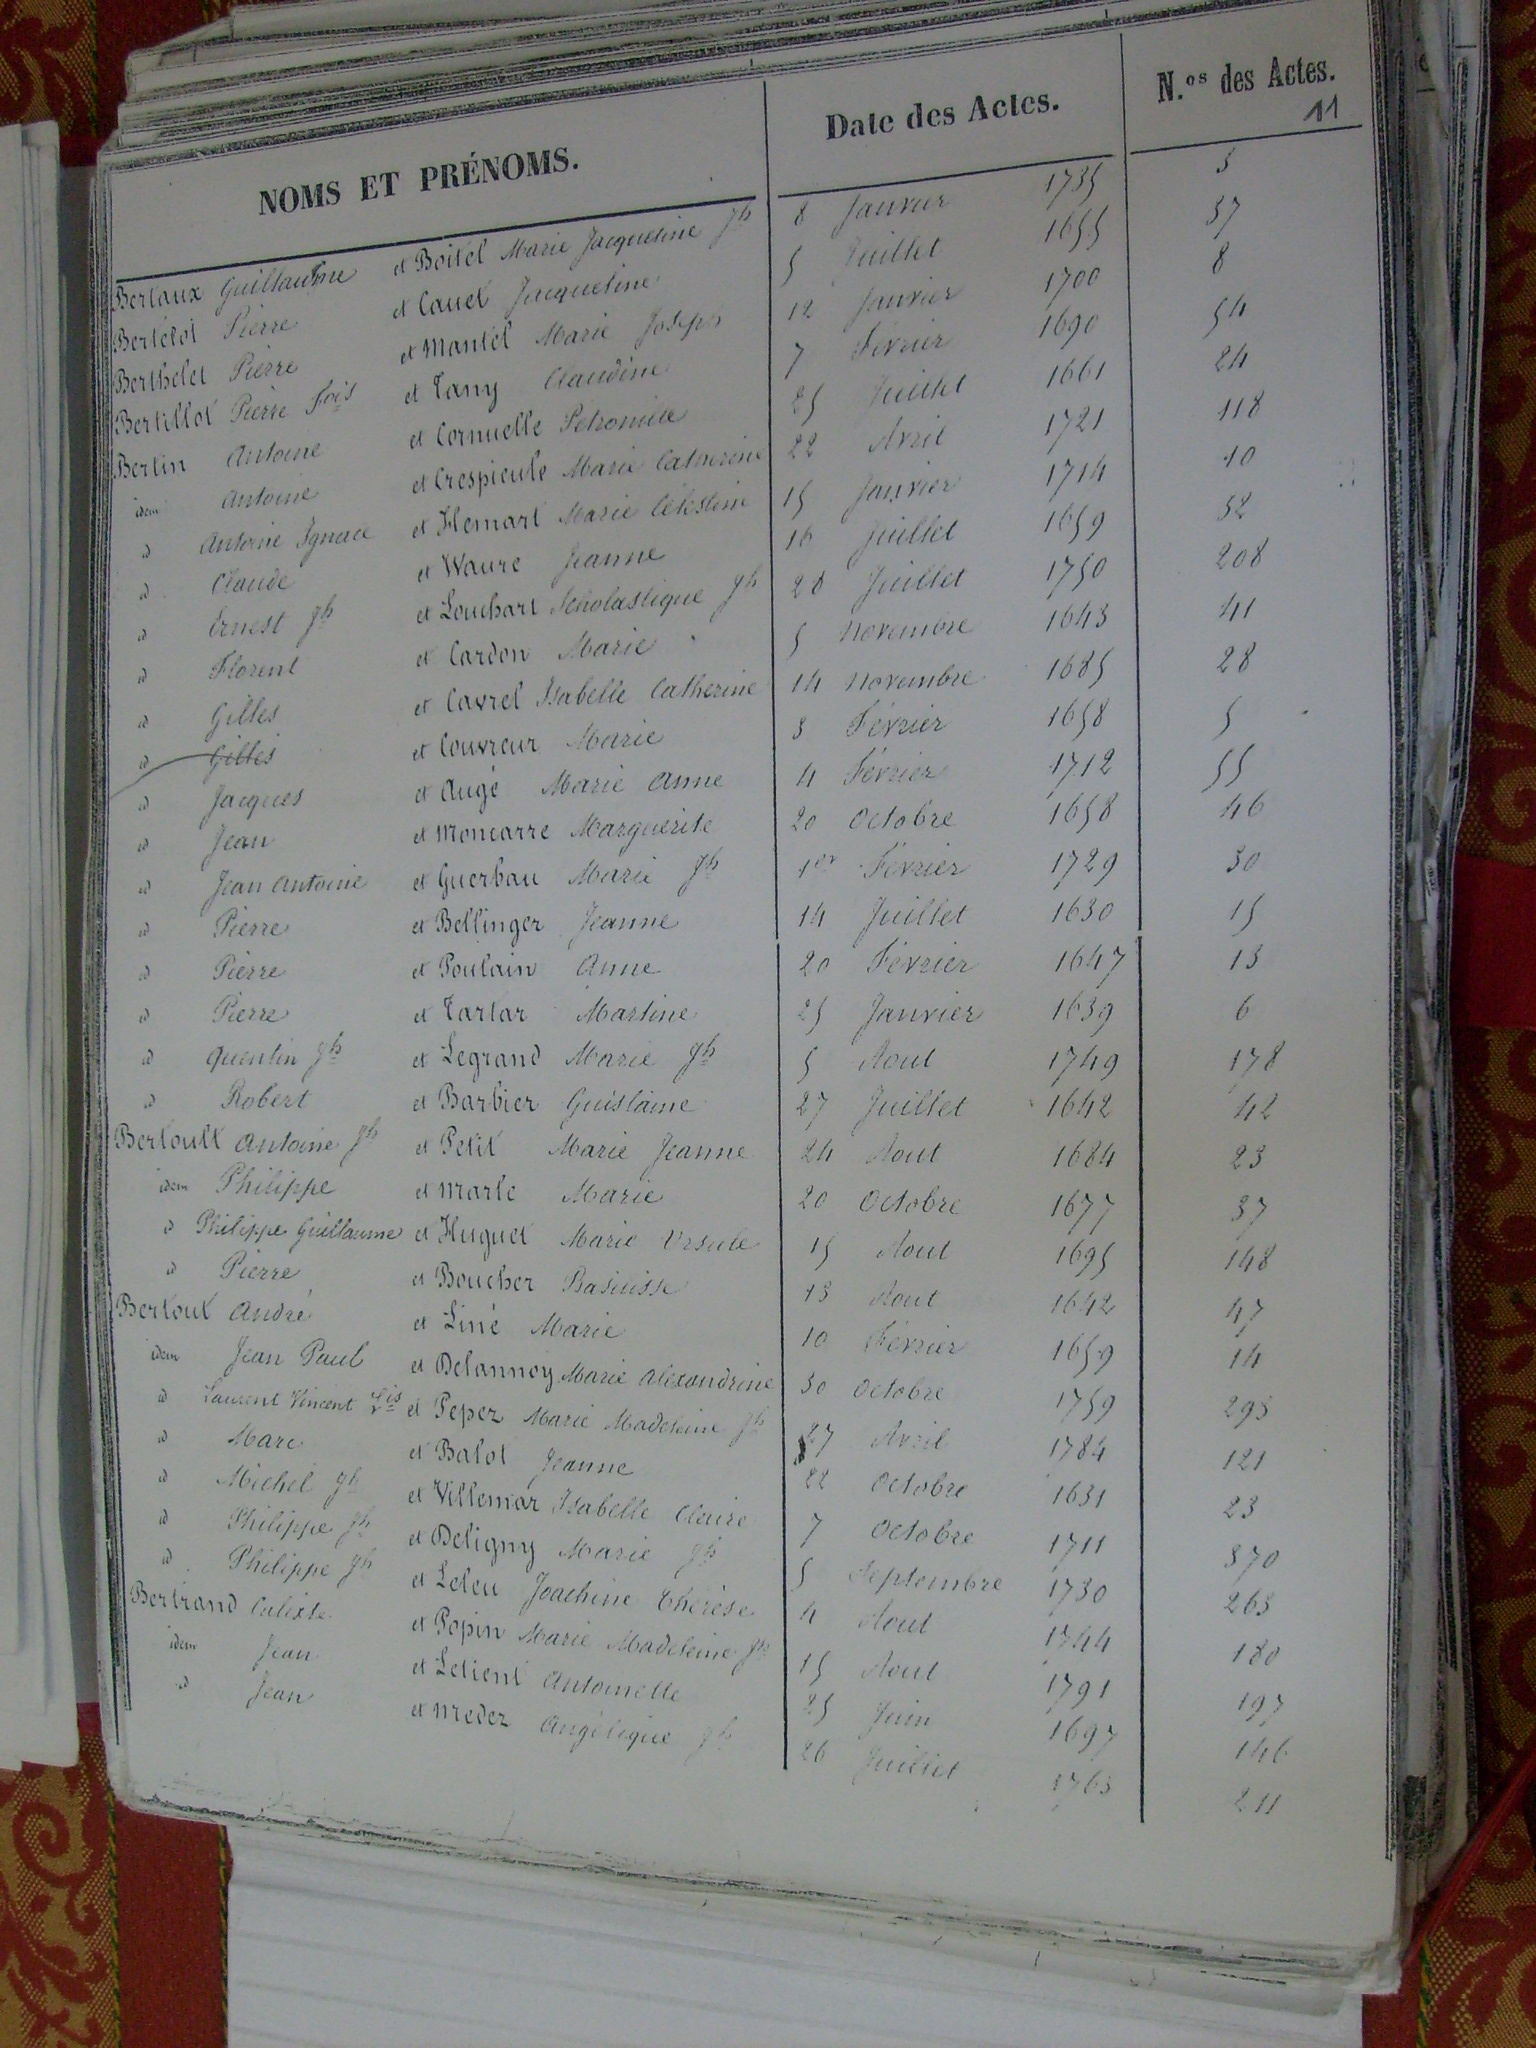 NOMS ET PRÉNOMS. Date des Actes. N.os des Actes.
11
Bertaux Guillaume et Boitel Marie Jacqueline Jh 8 Janvier 1735 3
Bertelot Pierre et Cauet Jacqueline 5 Juillet 1655 37
Berthelet Pierre et Mantel Marie Joseph 12 Janvier 1700 8
Bertillot Pierre Fois et Tany Claudine 7 Février 1690 54
Bertin Antoine et Cornuelle Pétronille 25 Juillet 1661 24
idem Antoine et Crespieule Marie Catherine 22 Avril 1721 118
id Antoine Ignace et Flemart Marie Célestine 15 Janvier 1714 10
id Claude et Waure Jeanne 16 Juillet 1659 32
id Ernest Jh et Louchart Scholastique Jh 28 Juillet 1750 208
id Florent et Cardon Marie 5 Novembre 1643 41
id Gilles et Cavrel Isabelle Catherine 14 Novembre 1685 28
id Gilles et Couvreur Marie 3 Février 1658 5
id Jacques et Augé Marie Anne 4 Février 1712 55
id Jean et Moncarre Marguerite 20 Octobre 1658 46
id Jean Antoine et Guerbau Marie Jh 1er Février 1729 30
id Pierre et Bellinger Jeanne 14 Juillet 1630 15
id Pierre et Poulain Anne 20 Février 1647 13
id Pierre et Tartar Martine 25 Janvier 1639 6
id Quentin Jh et Legrand Marie Jh 5 Aout 1749 178
id Robert et Barbier Guislaine 27 Juillet 1642 42
Bertoult Antoine Jh et Petit Marie Jeanne 24 Aout 1684 23
idem Philippe et Marle Marie 20 Octobre 1677 37
id Philippe Guillaume et Huguet Marie Ursule 15 Aout 1695 148
id Pierre et Boucher 13 Aout 1642 47
Bertout André et Liné Marie 10 Février 1659 14
idem Jean Paul et Delannoy Marie Alexandrine 30 Octobre 1759 293
id Laurent Vincent et Pepez Marie Madeleine Jh 27 Avril 1784 121
id Marc et Balot Jeanne 22 Octobre 1631 23
id Michel Jh et Villemar Isabelle Claire 7 Octobre 1711 370
id Philippe Jh et Deligny Marie Jh 5 Septembre 1730 263
id Philippe Jh et Leleu Joachine Thérèse 4 Aout 1744 180
Bertrand Calixte et Popin Marie Madeleine Jh 15 Aout 1791 197
idem Jean et Letient Antoinette 25 Juin 1697 146
id Jean et Medez Angélique Jh 26 Juillet 1763 211